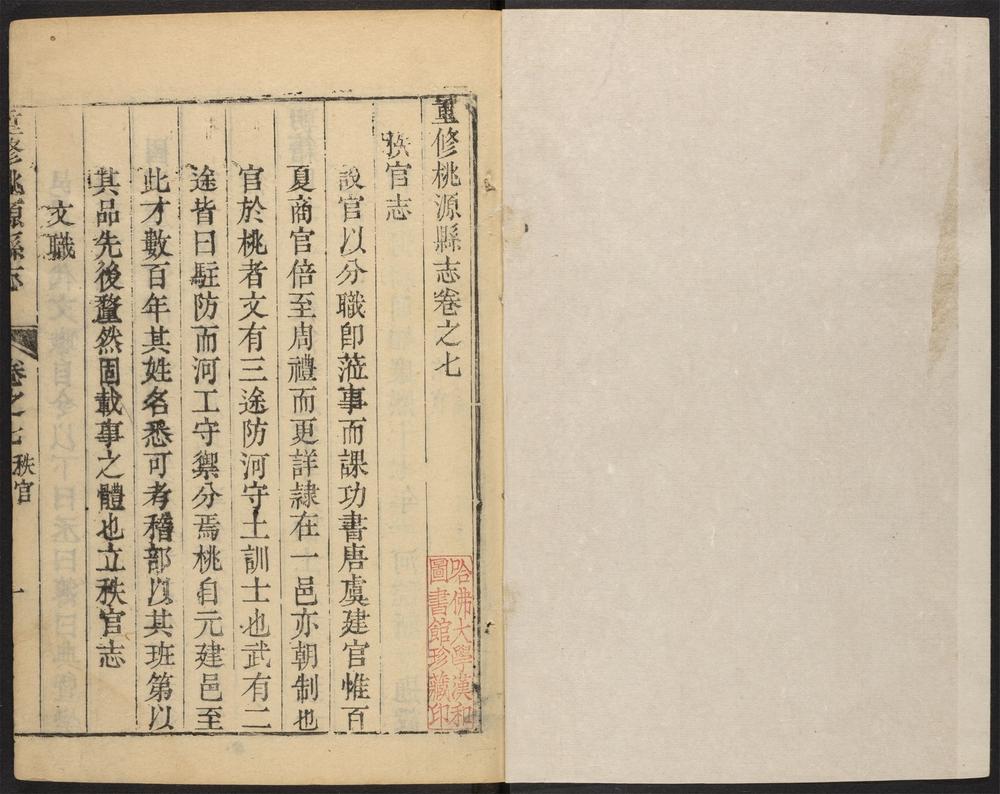 重修桃源縣志卷之七
秩官志
設官以分職即蒞事而課功書唐虞建官惟百
夏商官倍至周禮而更詳隷在一邑亦朝制也
官於桃者文有三途防河守土訓士也武有二
途皆曰駐防而河工守禦分焉桃自元建邑至
此才數百年其姓名悉可考稽部以其班第以
其品先後釐然固載事之體也立秩官志
文職
重修桃源縣志
卷之七
秩官
一
哈佛大學漢和
圖書館珍藏印